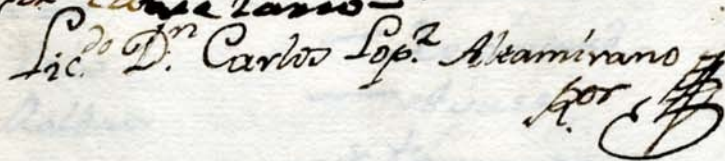 Lic.do D.n Carlos Lop.z Altamirano
R.or